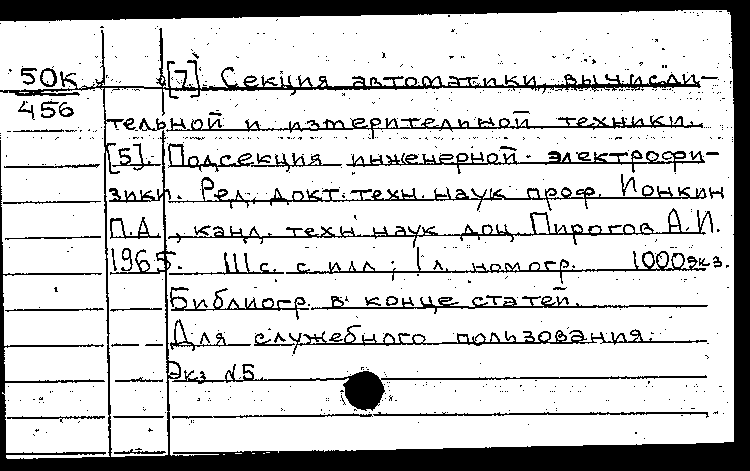 50к [7]. Секция автоматики, вычисли-
456
тельной и измерительной техники.
[5]. Подсекция инженерной электрофи-
зики. Ред. докт. техн. наук проф. Ионкин
П.А., канд. техн. наук доц. Пирогов А.И.
1965. 111 с. с илл.; 1 л. номогр. 1000 экз.
Библиогр. в конце статей.
Для служебного пользования.
Экз №5